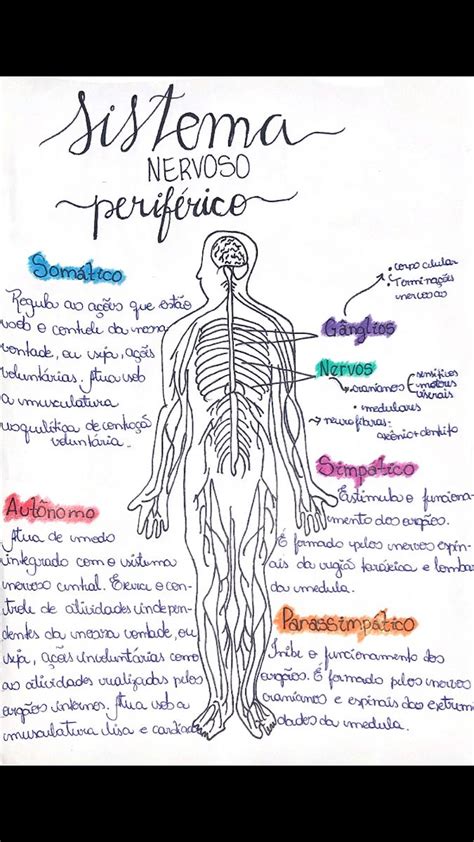 Sistema
NERVOSO
periférico
Somático
Regula as ações que estão
sob o controle da nossa
vontade, ou seja, ações
voluntárias. Atua sob
a musculatura
esquelética de contração
voluntária.
Autônomo
Atua de modo
integrado com o sistema
nervoso central. Exerce o con-
trole de atividades indepen-
dentes da nossa vontade, ou
seja, ações involuntárias como
as atividades realizadas pelos
orgãos internos. Atua sob a
musculatura lisa e cardíaca
• corpo celular
• Terminações
nervosas
Gânglios
Nervos
cranianos
sensitivos
motores
• medulares
neurofibras:
axônio + dentrito
Simpático
Estimula o funciona-
mento dos orgãos.
É formado pelos nervos espin-
ais da região torácica e lombar
da medula.
Parassimpático
Inibe o funcionamento dos
orgãos. É formado pelos nervos
cranianos e espinais das extremi-
dades da medula.